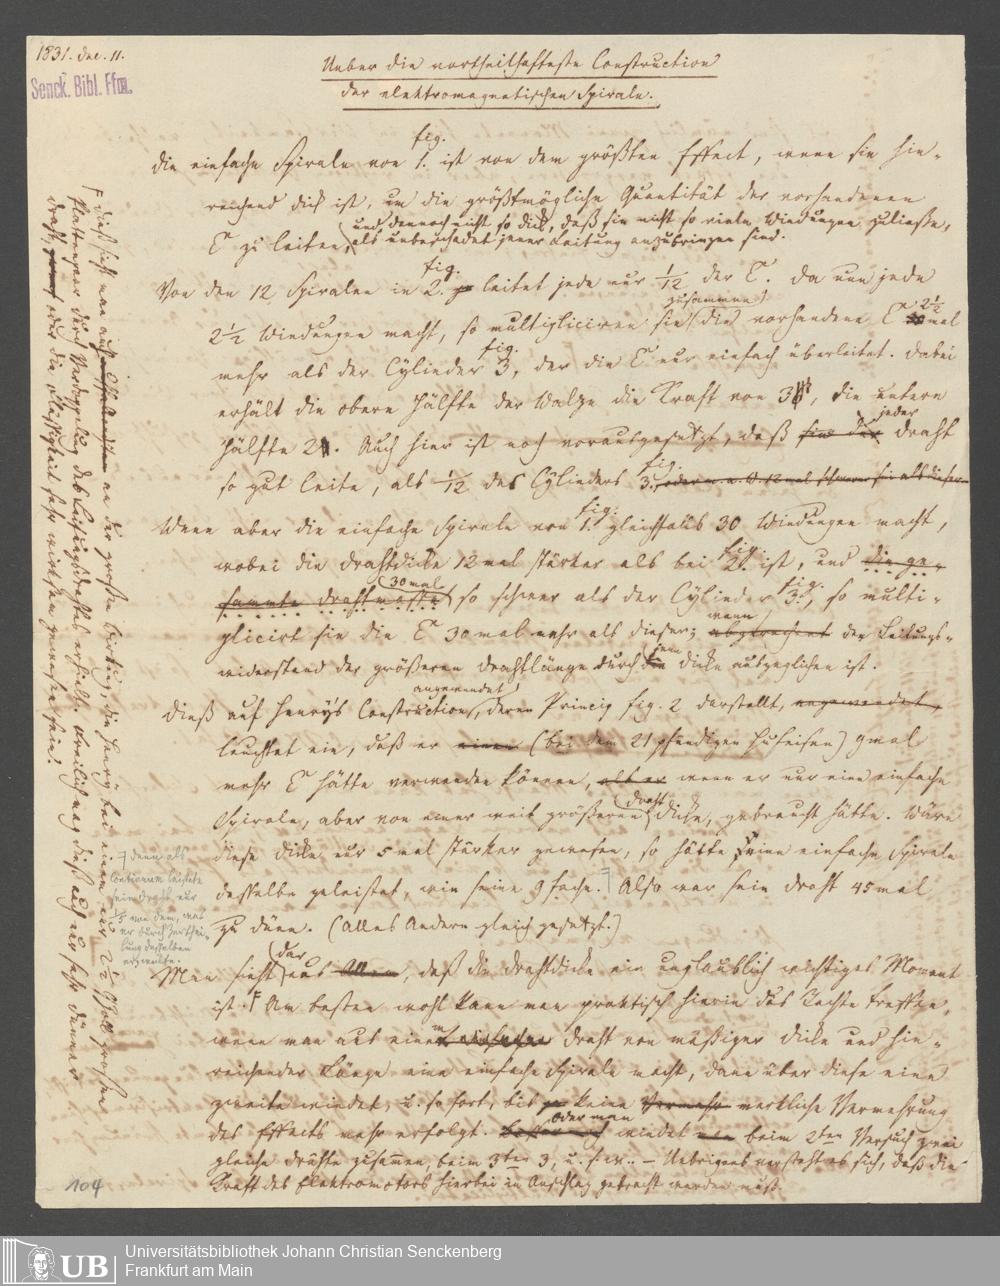 1831. Dec. 11.
Senck. Bibl. Ffm.
Ueber die vortheilhafteste Construction
der elektromagnetischen Spirale.
fig.
Die einfache Spirale von 1. ist von dem größten Effect, wenn sie hin-
reichend dick ist, um die größtmögliche Quantität der vorhandenen
und dennoch nicht so dick, daß sie nicht so viele Windungen zuließe,
E zu leiten, als unbeschadet jener Leitung anzubringen sind.
fig.
Von den 12 Spiralen in 2. leitet jede nur 1/12 der E. Da nun jede
zusammen 2½
2½ Windungen macht, so multipliciren sie die vorhandene E mal
fig.
mehr als der Cylinder 3, der die E nur einfach überleitet. Dabei
erhält die obere Hälfte der Walze die Kraft von 3, die untere
jeder
Hälfte 2. Auch hier ist noch vorausgesetzt, daß Draht
fig.
so gut leite, als 1/12 des Cylinders 3.
fig.
Wenn aber die einfache Spirale von 1. gleichfalls 30 Windungen macht,
fig.
wobei die Drahtdicke 12 mal stärker als bei 2. ist, und die ge-
30 mal fig.
sammte Drahtmasse so schwer als der Cylinder 3., so multi-
wenn
plicirt sie die E 30 mal mehr als dieser; abgerechnet der Leitungs-
jene
widerstand der größeren Drahtlänge durch die Dicke ausgeglichen ist.
angewendet
Dieß auf Henrys Construction, deren Princip fig. 2 darstellt, angewendet,
leuchtet ein, daß er einen (bei dem 21 pfündigen Hufeisen) 9 mal
mehr E hätte verwenden können, als er wenn er nur eine einfache
Draht
Spirale, aber von einer weit größeren Dicke, gebraucht hätte. Wäre
diese Dicke nur 5 mal stärker gewesen, so hätte seine einfache Spirale
dasselbe geleistet, wie seine 9 fache. Also war sein Draht 45 mal
zu dünn. (Alles Andere gleich gesetzt.)
dar
Man sieht aus Allem, daß die Drahtdicke ein unglaublich wichtiges Moment
ist. Am besten wohl kann man praktisch hierin das Rechte treffen,
wenn man aus einem einfachen Draht von mäßiger Dicke und hin-
reichender Länge eine einfache Spirale macht, dann über diese eine
zweite windet, u. so fort, bis keine merkliche Vermehrung
oder man
des Effects mehr erfolgt. windet beim 2ten Versuch zwei
gleiche Drähte zusammen, beim 3ten 3, u. s. w. – Uebrigens versteht es sich, daß die
Kraft des Elektromotors hierbei in Anschlag gebracht werden muß.
Dieß sieht man auch an der großen Wirkung, die Henry bei einem nur 2½ Zoll großen
Plattenpaar durch Verdoppelung des Leitungsdrahtes erhielt. Freilich mag dieß auch ein sehr dünner
Draht oder die Flüssigkeit sehr wirksam gewesen sein.
denn als
Continuum leistete
sein Draht nur
1/5 von dem, was
er durch Zerthei-
lung desselben
erzielte.
104
UB
Universitätsbibliothek Johann Christian Senckenberg
Frankfurt am Main